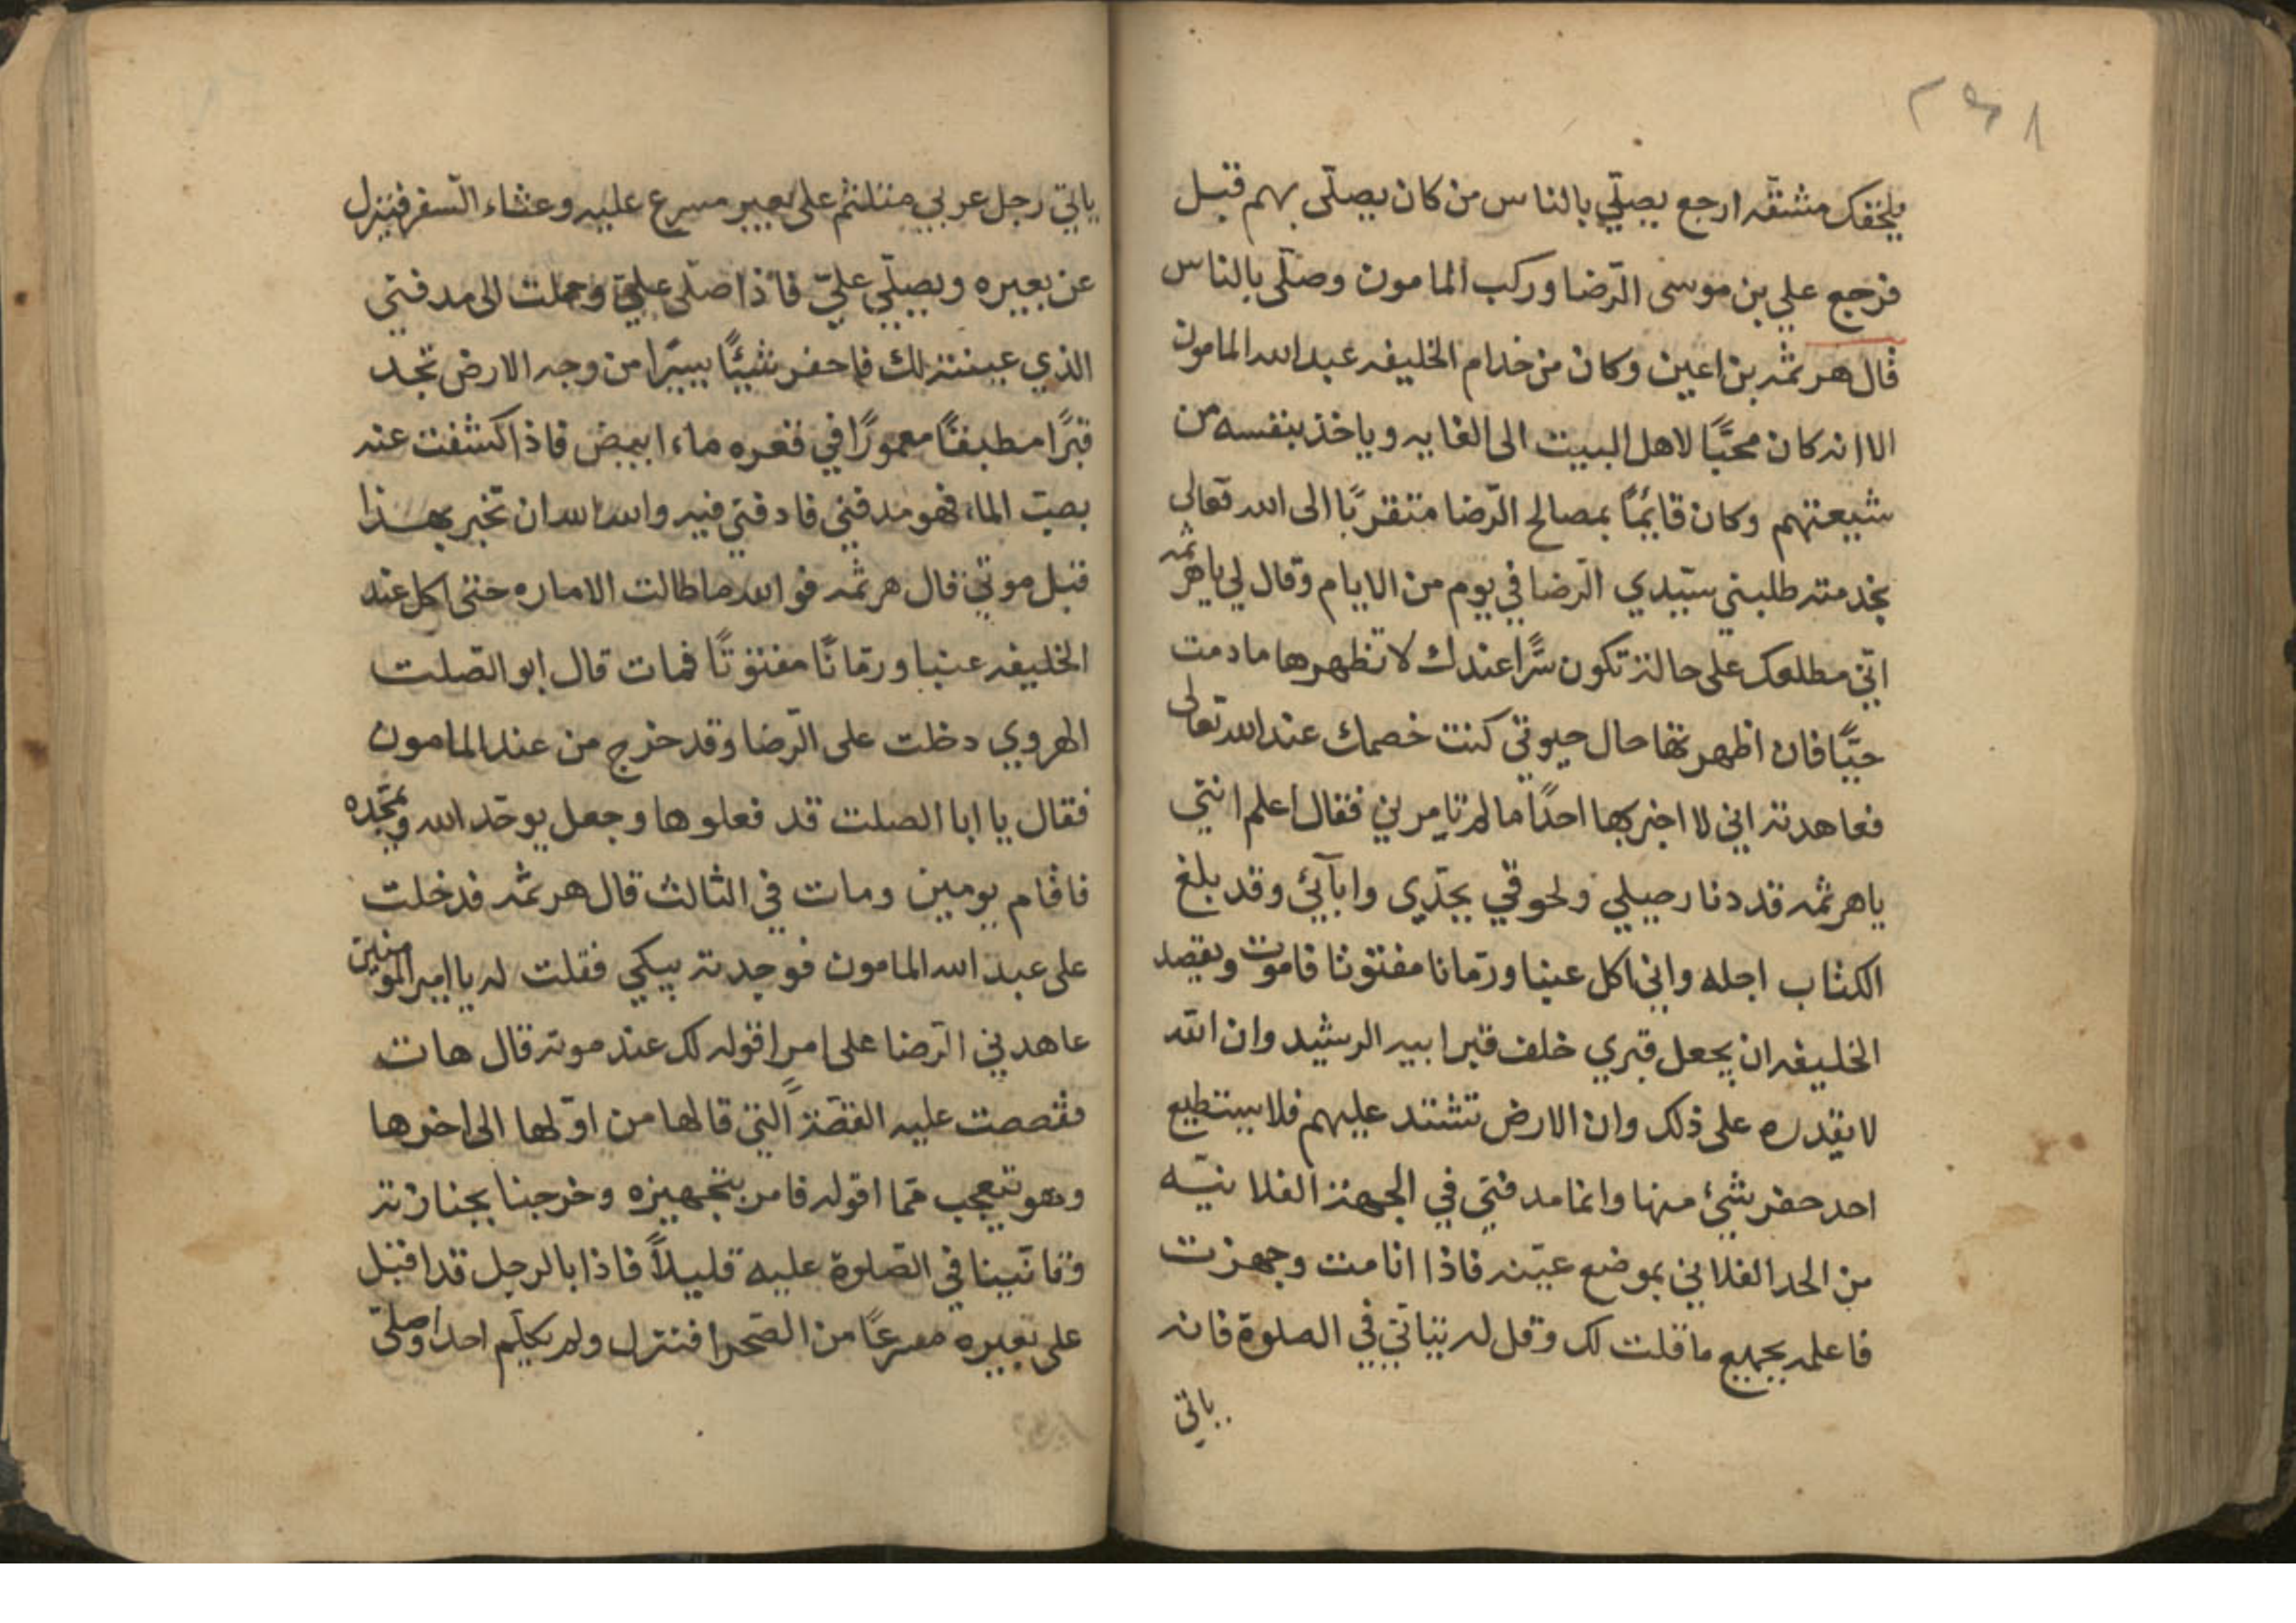 يلحقك مشقه ارجع يصلّي بالناس من كان يصلّى بهم قبل
فرجع علي بن موسى الرّضا وركب المامون وصلّى بالناس
قال هرثمه بن اعين وكان من خدام الخليفه عبد الله المامون
الا انه كان محبًّا لاهل البيت الى الغايه وياخذ بنفسه من
شيعتهم وكان قايمًا بمصالح الرّضا متقربًا الى الله تعالى
بخدمته طلبني سيّدي الرّضا في يوم من الايام وقال لي يا هرثمه
انّي مطلعك على حالة تكون سرًّا عندك لا تظهرها ما دمت
حيًّا فان اظهرتها حال حيوتي كنت خصمك عند الله تعالى
فعاهدته اني لا اخبر بها احدًا ما لم تامرني فقال اعلم انني
يا هرثمه قد دنا رحيلي ولحوقي بجدّي وابآئي وقد بلغ
الكتاب اجله واني اكل عنبا ورمّانا مفتوتا فاموت ويقصد
الخليفه ان يجعل قبري خلف قبر ابيه الرشيد وان الله
لا يقدره على ذلك وان الارض تشتد عليهم فلا يستطيع
احد حفر شئ منها وانما مدفني في الجهة الفلانيّه
من الحد الفلاني بموضع عيّنه فاذا انا مت وجهزت
فاعلمه بجميع ما قلت لك وقل له يتاتّي في الصلوة فانه
ياتي
ياتي رجل عربي متلثم على بعير مسرع عليه وعثاء السّفر فينزل
عن بعيره ويصلّي عليّ فاذا صلّى عليّ وحملت الى مدفني
الذي عينته لك فاحفر شيئًا يسيرًا من وجه الارض تجد
قبرًا مطبقًا معمورًا في قعره ماء ابيض فاذا كشفت عنه
نضب الماء فهو مدفني فادفني فيه والله الله ان تخبر بهذا
قبل موتي قال هرثمه فوالله ما طالت الاماره حتى اكل عند
الخليفه عنبا ورمّانًا مفتوتًا فمات قال ابو الصّلت
الهروي دخلت على الرّضا وقد خرج من عند المامون
فقال يا ابا الصلت قد فعلوها وجعل يوحّد الله ويمجّده
فاقام يومين ومات في الثالث قال هرثمه فدخلت
على عبد الله المامون فوجدته يبكي فقلت له يا امير المومنين
عاهدني الرّضا على امر اقوله لك عند موته قال هات
فقصصت عليه القصّة التي قالها من اوّلها الى اخرها
وهو يتعجب ممّا اقوله فامر بتجهيزه وخرجنا بجنازته
وتانّينا في الصّلوة عليه قليلاً فاذا بالرجل قد اقبل
على بعيره مسرعًا من الصّحرا فنزل ولم يكلّم احدا وصلّى